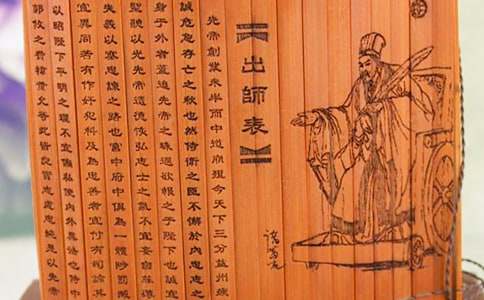 出師表
先帝創業未半而中道崩殂今天下三分益州疲
誠危急存亡之秋也然侍衛之臣不懈於內忠志之
身於外者蓋追先帝之殊遇欲報之於陛下也誠宜
聖聽以光先帝遺德恢弘志士之氣不宜妄自菲薄
失義以塞忠諫之路也宮中府中俱為一體陟罰臧
宜異同若有作奸犯科及為忠善者宜付有司論其
以昭陛下平明之理不宜偏私使內外異法也侍中
郭攸之費禕董允等此皆良實志慮忠純是以先帝
諸葛亮